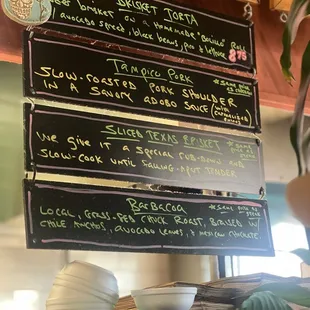 BRISKET TORTA
beef brisket on a homemade "Bolillo" Roll
avocado spread, black beans, pico & lettuce 8.75
Tampico Pork
* Same price as chicken
SLOW-ROASTED PORK SHOULDER
IN A SAVORY ADOBO SAUCE w/ CARAMELIZED ONIONS
SLICED TEXAS BRISKET
* Same price
WE GIVE IT A SPECIAL RUB-DOWN AND
SLOW-COOK UNTIL FALLING-APART TENDER
BARBACOA
* Same price as
LOCAL, GRASS-FED CHUCK ROAST, BRAISED W/
CHILE ANCHOS, AVOCADO LEAVES, & MEXICAN CHOCOLATE